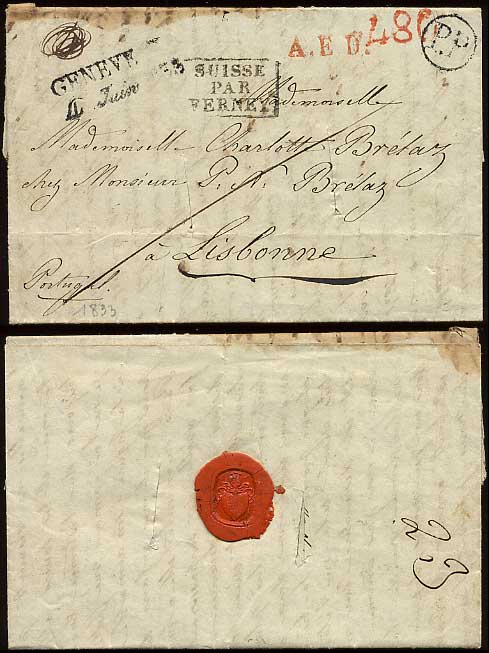 A.E.D. 480 P.P.
GENEVE
Juin
SUISSE
PAR
FERNEY
Mademoiselle
Mademoiselle Charlotte Brélaz
chez Monsieur P. A. Brélaz
à Lisbonne
Portugal.
1833
23